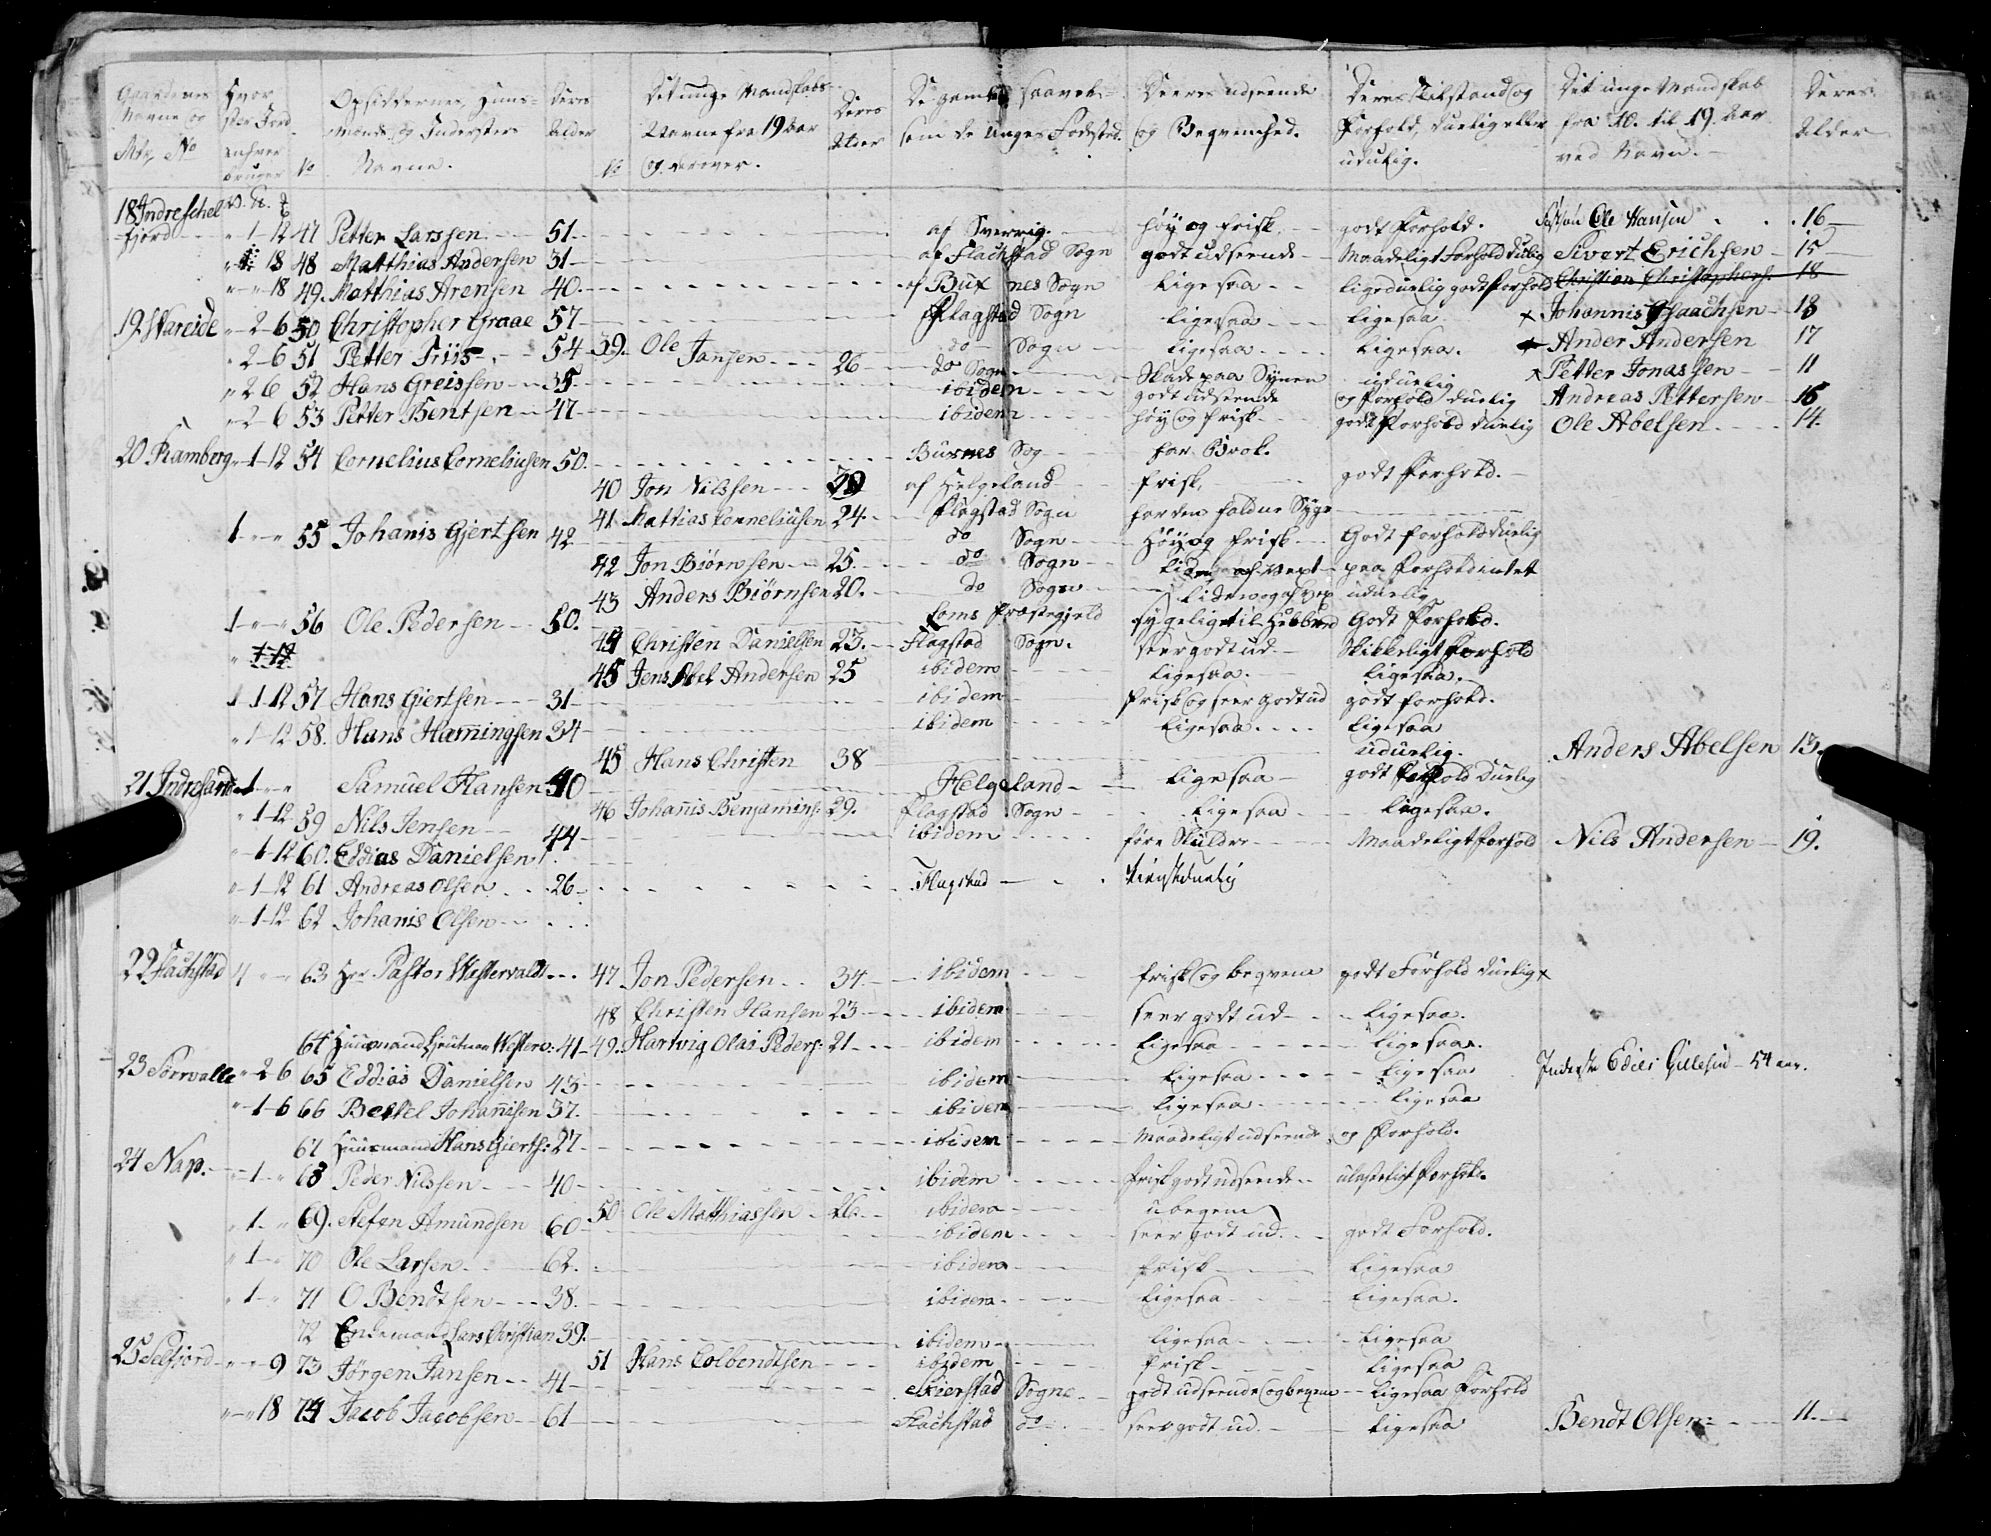 Gaardenes Navne og Mtz No | Hvor stor Jord enhver bruger | No | Opsiddernes, Huus- Mænds, og Indersters Navne. | Deres Alder | No | Det unge Mandskabs Navne fra 19 Aar og derover. | Deres Alder | De gamles saavel som de Unges Fødested. | Deeres udseende og Beqvemhed. | Deres tilstand og Forhold, duelig eller uduelig. | Det unge Mandskab fra 10. til 19. Aar ved Navn. | Deres Alder
18 Indreschelfjord | " 1-12 | 47 | Petter Larssen | 51 | af Sverrig. | høy og frisk. | godt Forhold. | Ole Hansen | 16
18 | 48 | Matthias Andersen | 31 | af Flachstad Sogn | godt udseende | Maadeligt Forhold duelig | Sivert Erichsen | 15
" " 18 | 49. | Matthias Arensen | 40 | af Buxnes Sogn | ligesaa | ligeduelig godt Forhold | Christian Christophers. | 18
19 Wareide | " 2-6 | 50 | Christopher Graae | 57 | Flagstad Sogn | ligesaa | ligesaa | x Johannis Isaachsen | 18
" 2-6 | 51 | Petter Friis | 54 | 39. | Ole Jansen | 26 | do Sogn | ligesaa | ligesaa. | Ander Andersen | 17
" 2 6 | 52 | Hans Greissen | 35 | do Sogn | Skade paa Synen | uduelig | x Petter Jonassen | 11
ibidem | godt udseende | og forhold duelig | Andreas Pettersen | 16
" 2 6 | 53 | Petter Bentsen | 47 | ibidem | høy og frisk | godt Forhold duelig | Ole Abelsen | 14.
20 Ramberg | " 1-12 | 54 | Cornelius Corneliusen | 50. | Buxnes Sog | har Brok.
40 | Jon Nilssen | 30 | af Helgeland | frisk. | godt Forhold.
41 | Mathias Corneliusen | 24 | Flagstad Sogn | har den faldne Syge
1 " " | 55 | Johanis Gjertsen | 42 | do Sogn | Høy og frisk | Godt forhold duelig
42 | Jon Biørnsen | 25. | do Sogn | liden af vext | paa Forhold intet
43 | Anders Biørnsen | 20. | do Sogn | liden og af vext | uduelig
1 " " | 56 | Ole Pedersen | 50. | Loms Præstegjeld | sygelig til | Godt Forhold.
44 | Christen Danielsen | 23. | Flagstad Sogn. | seer godt ud. | Skikkeligt Forhold
45 | Jens Abel Andersen | 25 | ibidem | ligesaa. | ligesaa.
1 1-12 | 57 | Hans Giertsen | 31 | ibidem | frisk og seer Godt ud | godt forhold.
" 1-12 | 58. | Hans Hæmingsen | 34 | ibidem | ligesaa | ligesaa
45 | Hans Christen | 38 | uduelig. | Anders Abelsen | 13.
21 Indresand | 1 " " | Samuel Hansen | 40 | Helgeland | ligesaa | godt forhold duelig
" 1-12 | 59 | Nils Jensen | 44 | 46 | Johanis Benjamins: | 29. | Flagstad Sogn | ligesaa | ligesaa.
" 1-12 | 60. | Eddias Danielsen | ibidem | føre Skulder | Maadeligt forhold | Nils Andersen | 19.
" 1-12 | 61 | Andreas Olsen | 26 | Flagstad | tienstduelig
" 1-12 | 62 | Johanis Olsen
22 Flachstad | 4 " " | 63 | Hr. Pastor Westervaldt | 47 | Jon Pedersen | 34 | ibidem | frisk og beqvem | godt Forhold duelig x
48 | Christen Hansen | 23 | ibidem | seer godt ud | ligesaa.
64 | Huusmand Westerv: | 41 | 49. | Hartvig Olai Peders: | 21 | ibidem | ligesaa | ligesaa.
23 Sørvalle | " 2 6 | 65 | Eddias Danielsen | 43 | ibidem | ligesaa | ligesaa | Inderste | 54 aar.
" 1-6 | 66 | Bertel Johannisen | 37. | ibidem | ligesaa | ligesaa
67 | Huusmand Hans Gierts: | 27 | ibidem | Maadeligt udseende | og Forhold.
24 Nap. | " 1 " | 68 | Peder Nilssen | 40 | ibidem | frisk godt udseende | ulasteligt Forhold.
50 | Ole Matthiassen | 26 | ibidem | ubeqvem
" 1 " | 69. | Stefen Amundsen | 60 | ibidem | seer godt ud. | godt Forhold.
" 1 " | 70 | Ole Larsen | 62. | ibidem | frisk | ligesaa
" 1 " | 71 | O Bendtsen | 38. | ibidem | ligesaa | ligesaa.
72 | Enkemand Lars Christian | 39. | ibidem | ligesaa | ligesaa
25 Selfjord | " " 9 | 73 | Jørgen Jansen | 41 | 51 | Hans Colbendtsen | ibidem | frisk | ligesaa
Sogne | godt udseende og beqvem | ligesaa Forhold
" " 18 | 74 | Jacob Jacobsen | 61 | Flachstad do | seer godt ud. | ligesaa | Bendt Olsen | 11.